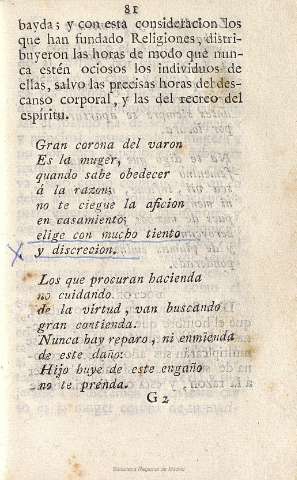 81
bayda; y con esta consideracion los
que han fundado Religiones, distri-
buyeron las horas de modo que nun-
ca estén ociosos los individuos de
ellas, salvo las precisas horas del des-
canso corporal, y las del recreo del
espíritu.
Gran corona del varon
Es la muger,
quando sabe obedecer
á la razon;
no te ciegue la aficion
en casamiento;
elige con mucho tiento
y discrecion.
Los que procuran hacienda
no cuidando
de la virtud, van buscando
gran contienda.
Nunca hay reparo, ni enmienda
de este daño:
Hijo huye de este engaño
no te prenda.
G 2
Biblioteca Regional de Madrid